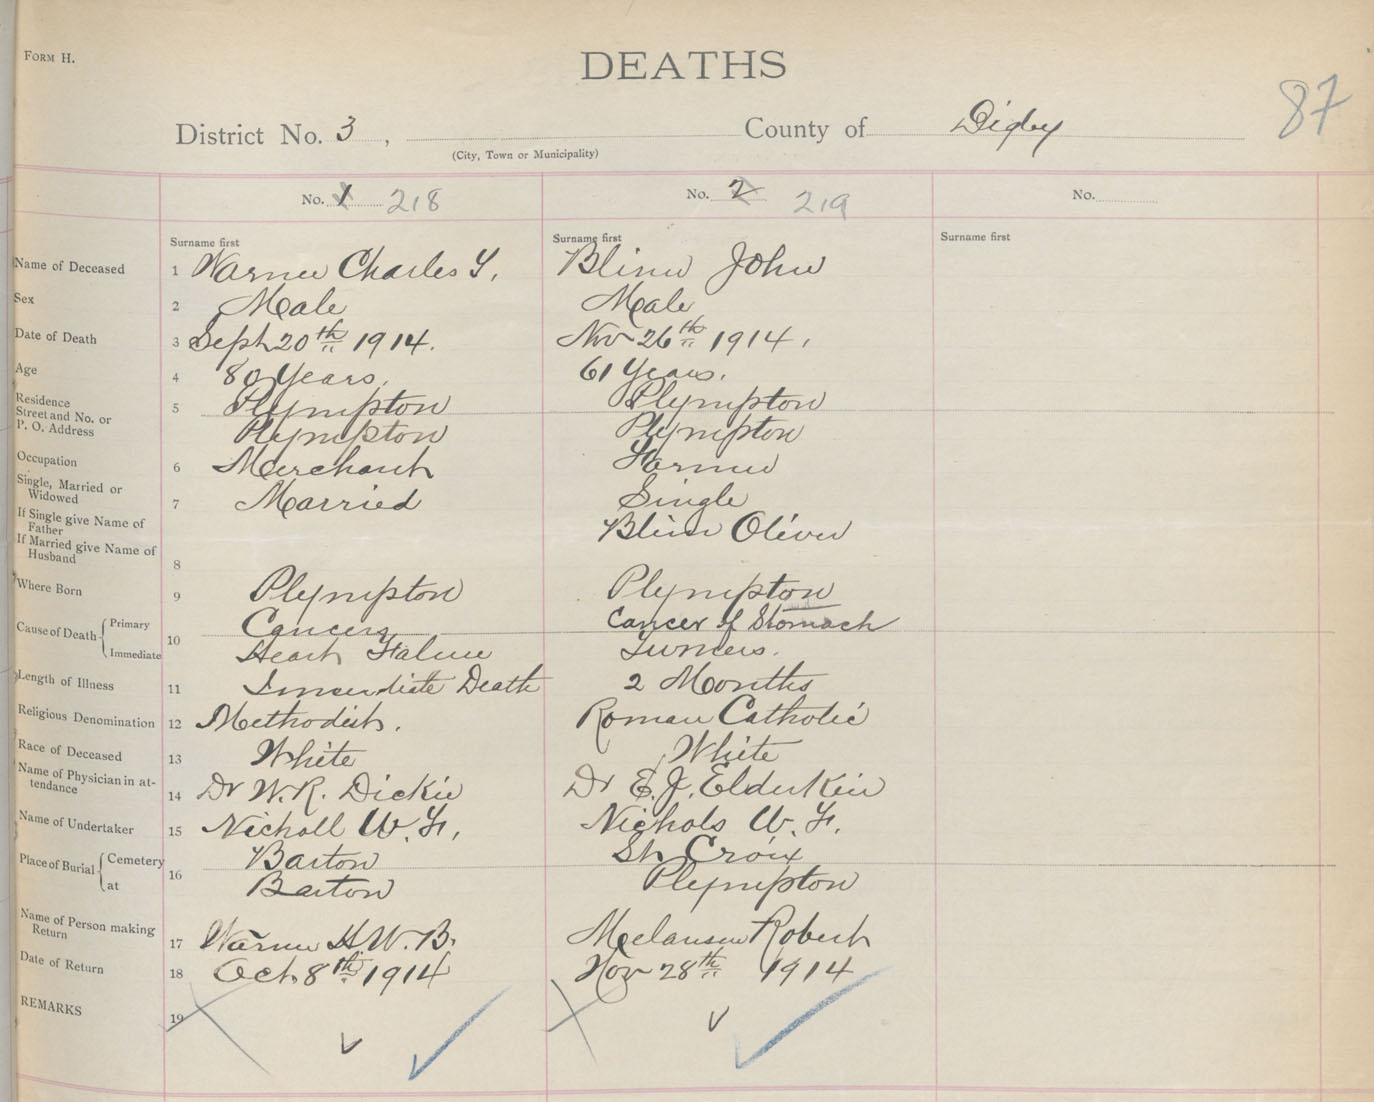 FORM H.
DEATHS
87
District No. 3, County of Digby
(City, Town or Municipality)
No. 1 218
No. 2 219
No.
Surname first
Surname first
Surname first
Name of Deceased 1 Warner Charles Y. Blinn John
Sex 2 Male Male
Date of Death 3 Sept 20th 1914. Nov 26th 1914.
Age 4 80 Years. 61 Years.
Residence
Street and No. or 5 Plympton Plympton
P. O. Address Plympton Plympton
Occupation 6 Merchant Farmer
Single, Married or
Widowed 7 Married Single
If Single give Name of
Father Blinn Oliver
If Married give Name of
Husband 8
Where Born 9 Plympton Plympton
Cause of Death Primary 10 Cancers Cancer of Stomach
Immediate Heart Falure Tumers.
Length of Illness 11 Immerdiate Death 2 Months
Religious Denomination 12 Methodist. Roman Catholic
Race of Deceased 13 White White
Name of Physician in at-
tendance 14 Dr W. R. Dickie Dr E. J. Elderkin
Name of Undertaker 15 Nicholl W. F. Nichols W. F.
Place of Burial Cemetery 16 Barton St Croix
at Barton Plympton
Name of Person making
Return 17 Warner H. W. B. Melanson Robert
Date of Return 18 Oct. 8th 1914 Nov 28th 1914
REMARKS 19